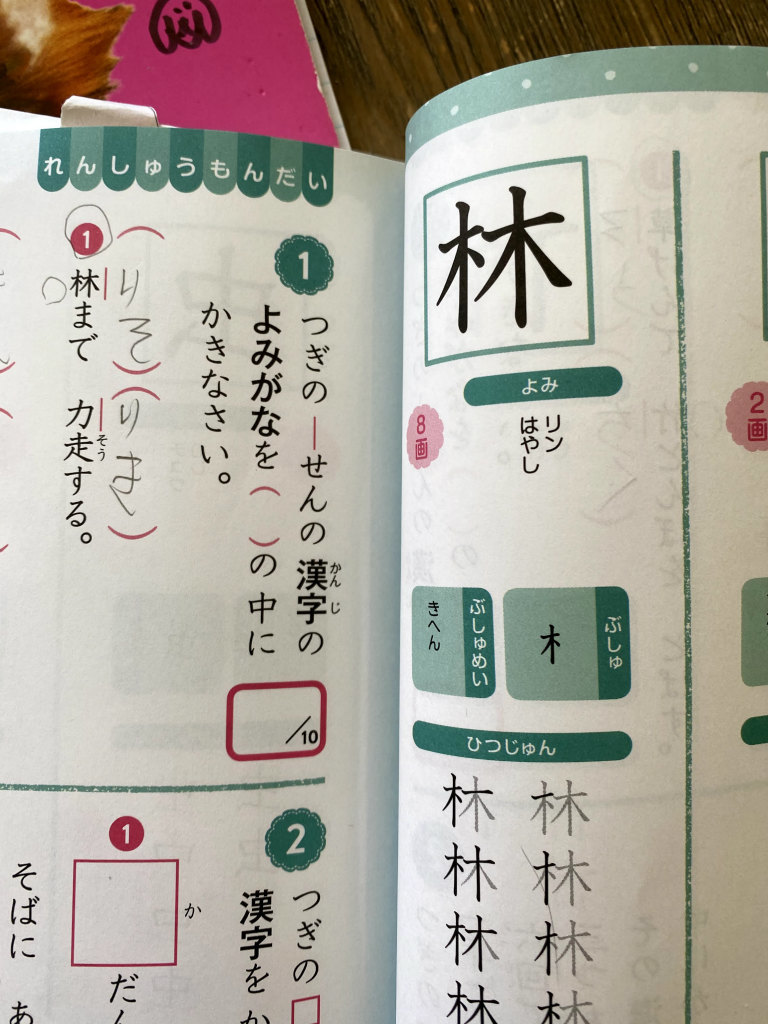 林
よみ
リン
はやし
8画
ぶしゅ
木
ぶしゅめい
きへん
ひつじゅん
林 林
林 林
林 林
林 林
2画
れんしゅうもんだい
1
つぎの―せんの漢字の
かん じ
よみがなを( )の中に
かきなさい。
/10
1
林まで 力走する。
そう
2
つぎの□
漢字をか
1
か
だん
そばに あ